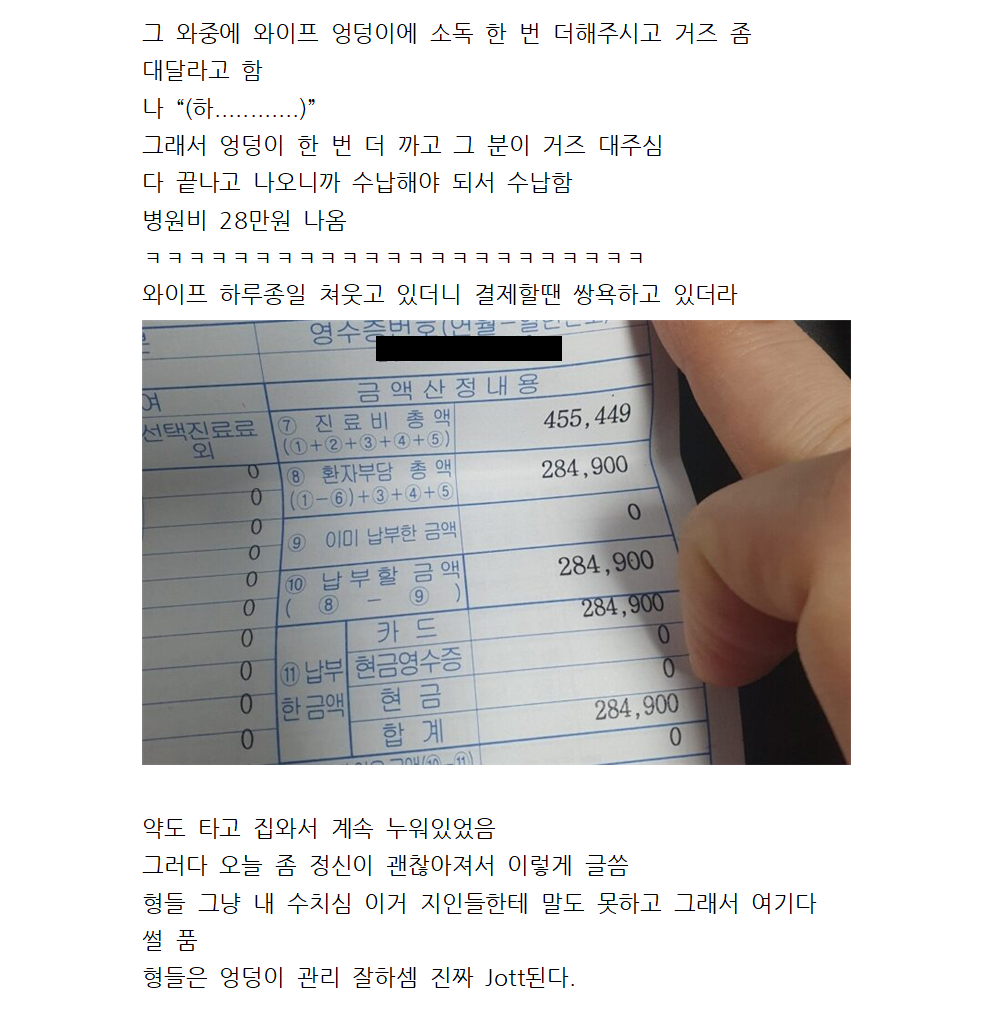 그 와중에 와이프 엉덩이에 소독 한 번 더해주시고 거즈 좀
대달라고 함
나 “(하............)”
그래서 엉덩이 한 번 더 까고 그 분이 거즈 대주심
다 끝나고 나오니까 수납해야 되서 수납함
병원비 28만원 나옴
ㅋㅋㅋㅋㅋㅋㅋㅋㅋㅋㅋㅋㅋㅋㅋㅋㅋㅋㅋㅋㅋㅋㅋ
와이프 하루종일 쳐웃고 있더니 결제할땐 쌍욕하고 있더라
영수증번호
여
금액산정내용
선택진료료
외
⑦ 진료비 총액
(①+②+③+④+⑤)
455,449
0
⑧ 환자부담 총액
(①-⑥)+③+④+⑤
284,900
0
0
⑨ 이미 납부한 금액
0
0
⑩ 납부할 금액
( ⑧ - ⑨ )
284,900
0
0
⑪ 납부
한금액
카드
284,900
0
현금영수증
0
0
현금
0
0
합계
284,900
0
0
약도 타고 집와서 계속 누워있었음
그러다 오늘 좀 정신이 괜찮아져서 이렇게 글씀
형들 그냥 내 수치심 이거 지인들한테 말도 못하고 그래서 여기다
썰 품
형들은 엉덩이 관리 잘하셈 진짜 Jott된다.